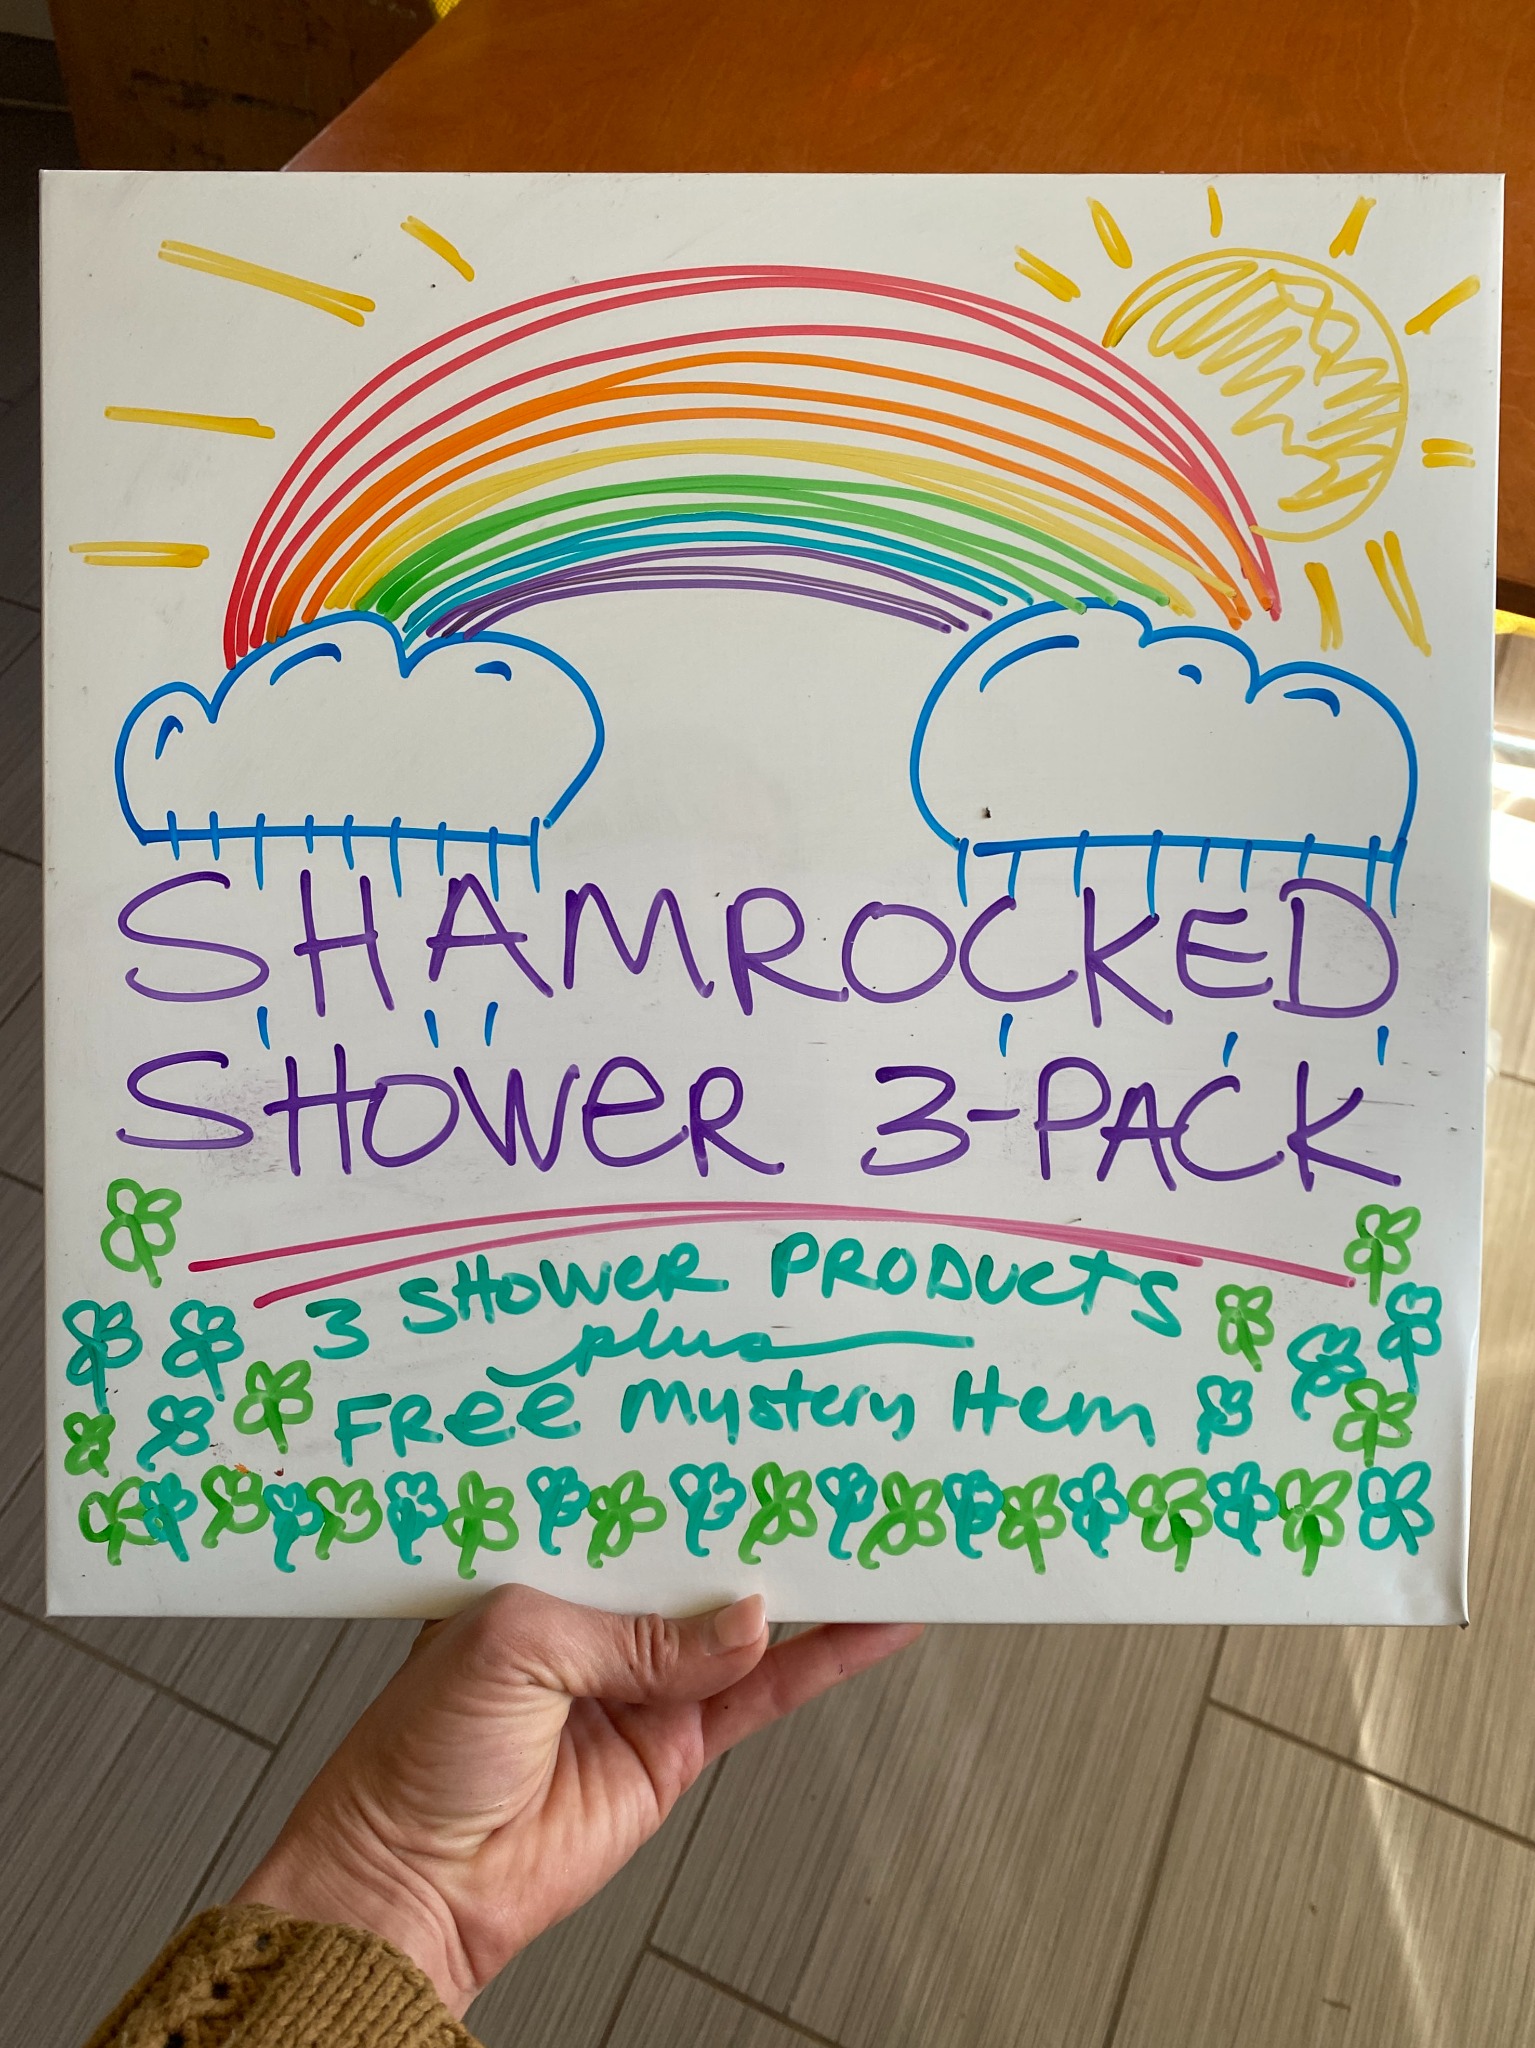 SHAMROCKED
SHOWER 3-PACK
3 SHOWER PRODUCTS
plus
FREE mystery Item